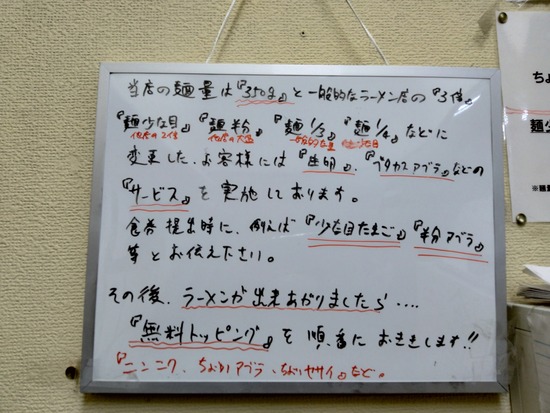 当店の麺量は『350g』と一般的なラーメン店の『3倍』
『麺少な目』『麺半分』『麺1/3』『麺1/4』などに
他店の2倍 他店の大盛 一般的な量
変更したお客様には『生卵』、『ブタカスアブラ』などの
『サービス』を実施しております。
食券提出時に、例えば『少な目たまご』『半分アブラ』
等とお伝え下さい。
その後、ラーメンが出来あがりましたら....
『無料トッピング』を順番におききします!!
『ニンニク、ちょいアブラ、ちょいヤサイ』など。
ちょ
麺